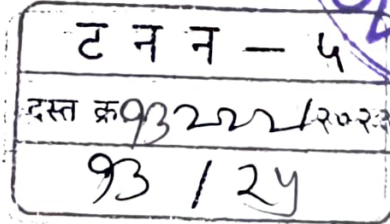 ट न न — ५
दस्त क्र १३२२२/२०२३
१३ / २५